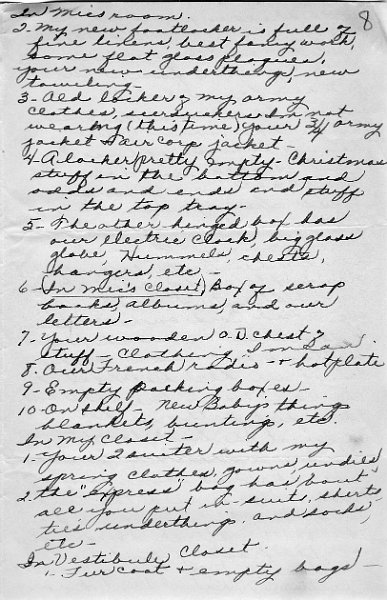 8
In Mic's room.
2- My new footlocker is full of
fine linens, best fancy work,
some flat glass plaques,
your new underthings, new
toweling-
3- Old locker of my army
clothes, seersuckers I'm not
wearing (this time) your 3/4 army
jacket & air corp jacket-
4- A locker pretty empty- Christmas
stuff in the bottom and
odds and ends and stuff
in the top tray-
5- The other hinged box has
our electric clock, big glass
globe, Hummels, chests,
hangers, etc-
6- (In Mic's closet) Box of scrap
books, albums, and our
letters-
7- Your wooden O.D. chest of
stuff- Clothing
8- Our French radio- + hotplate
9- Empty packing boxes-
10- On shelf- New Baby's things
blankets, bunting, etc.
In My Closet-
1- Your 2 suiter with my
spring clothes, gowns, undies
2. The "express" bag has bout
all you put in- suit, shirts
ties underthings and socks,
etc-
In Vestibule Closet.
1- Fur coat + empty bags-